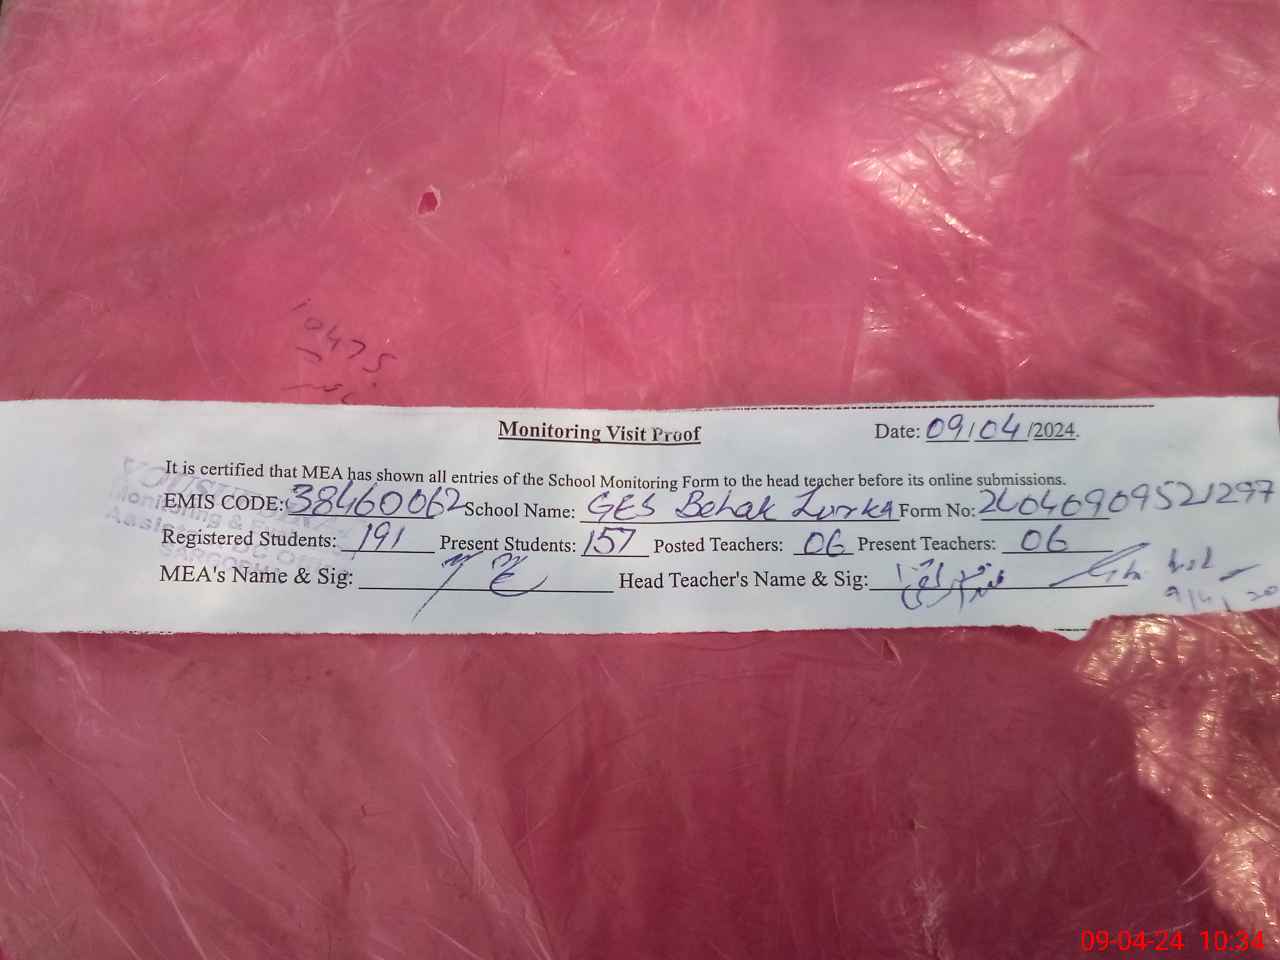 10475
Monitoring Visit Proof
Date: 09/04/2024.
It is certified that MEA has shown all entries of the School Monitoring Form to the head teacher before its online submissions.
EMIS CODE: 38460062 School Name: GES Behak Lurka Form No: 24040909521297
Registered Students: 191 Present Students: 157 Posted Teachers: 06 Present Teachers: 06
MEA's Name & Sig: Head Teacher's Name & Sig:
Monitoring &
Assistant
09-04-24 10:34